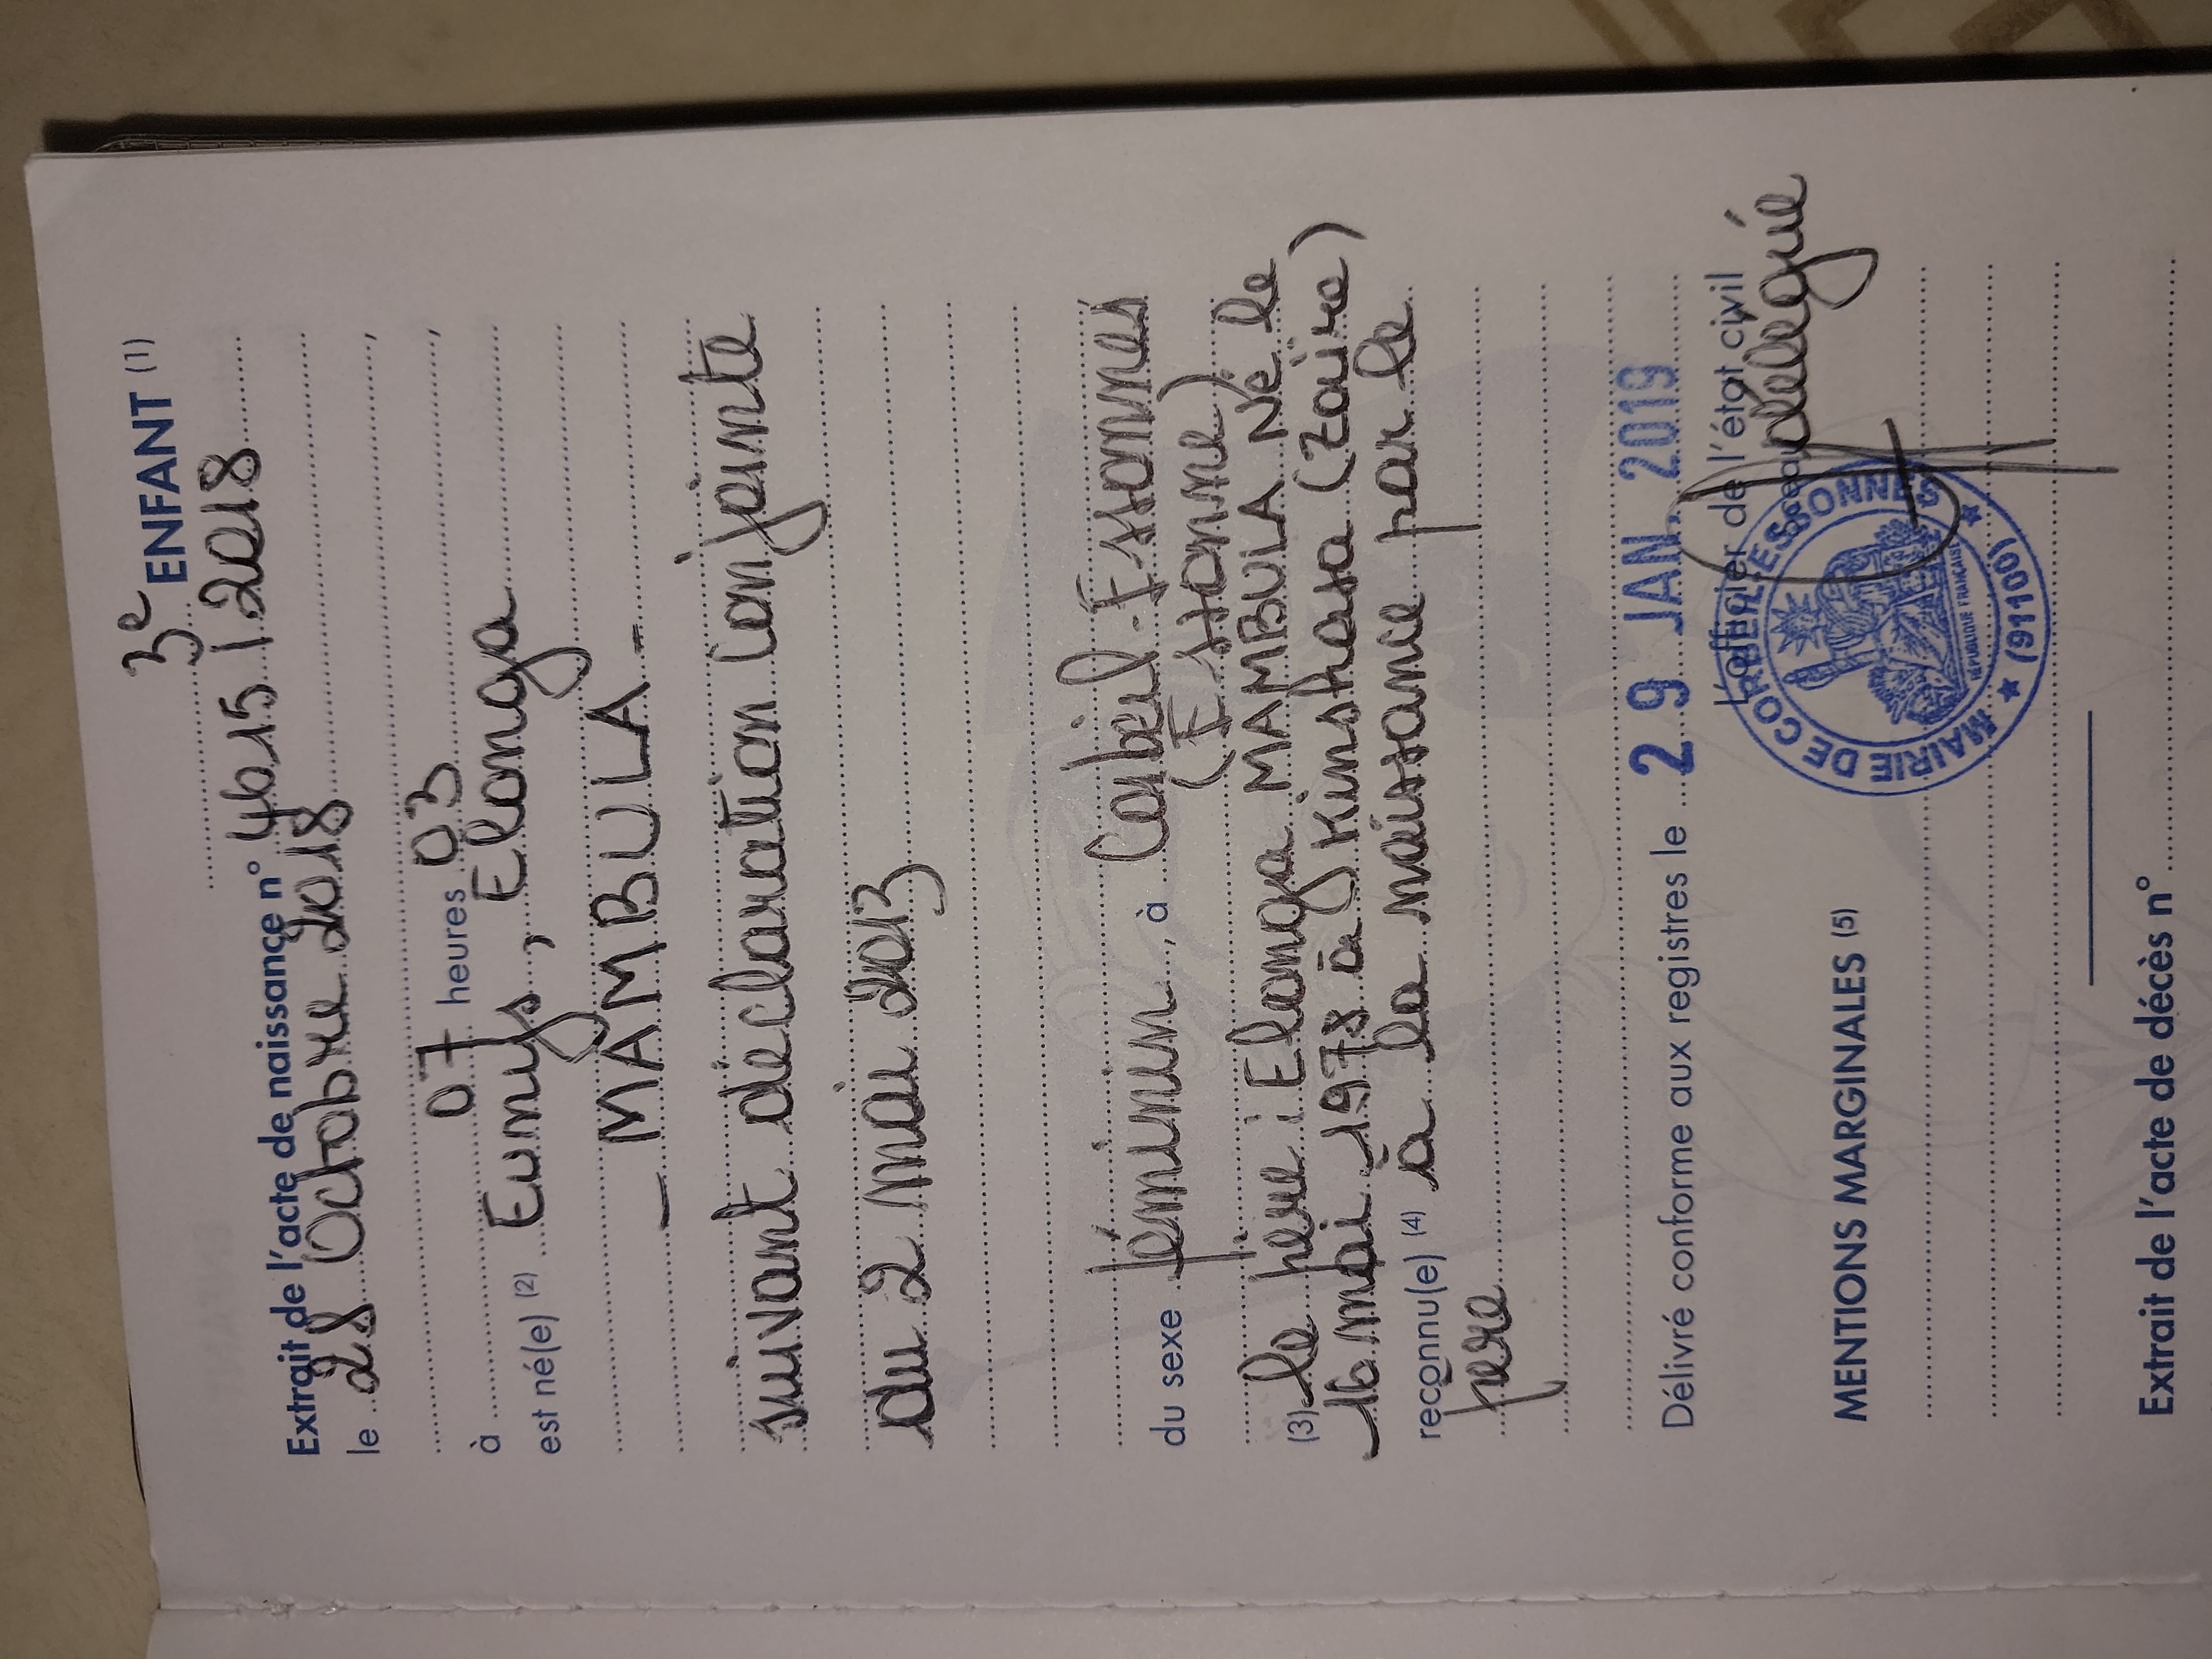 3e ENFANT (1)
Extrait de l'acte de naissance n° 4615 / 2018
le 28 Octobre 2018
à 07 heures 03
est né(e) (2) Eunys, Elonga
_ MAMBULA _
suivant déclaration conjointe
du 2 mai 2013
du sexe féminin, à Corbeil-Essonnes
(Essonne)
(3) le père : Elonga MAMBULA Né le
16 mai 1978 à Kinshasa (Zaïre)
reconnu(e) (4) à la naissance par le
père
Délivré conforme aux registres le 29 JAN. 2019
L'officier de l'état civil
délégué
MAIRIE DE CORBEIL-ESSONNES
RÉPUBLIQUE FRANÇAISE
(91100)
MENTIONS MARGINALES (5)
Extrait de l'acte de décès n°